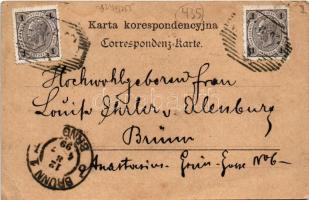 (435)
Karta korespondencyjna
Correspondenz-Karte.
Hochwohlgeboren Frau
Louise Ehrler v. Ehlenburg
Brünn
Anastasius-Grün-Gasse No 6-
BRÜNN 1
BRNO
12
8
4
99